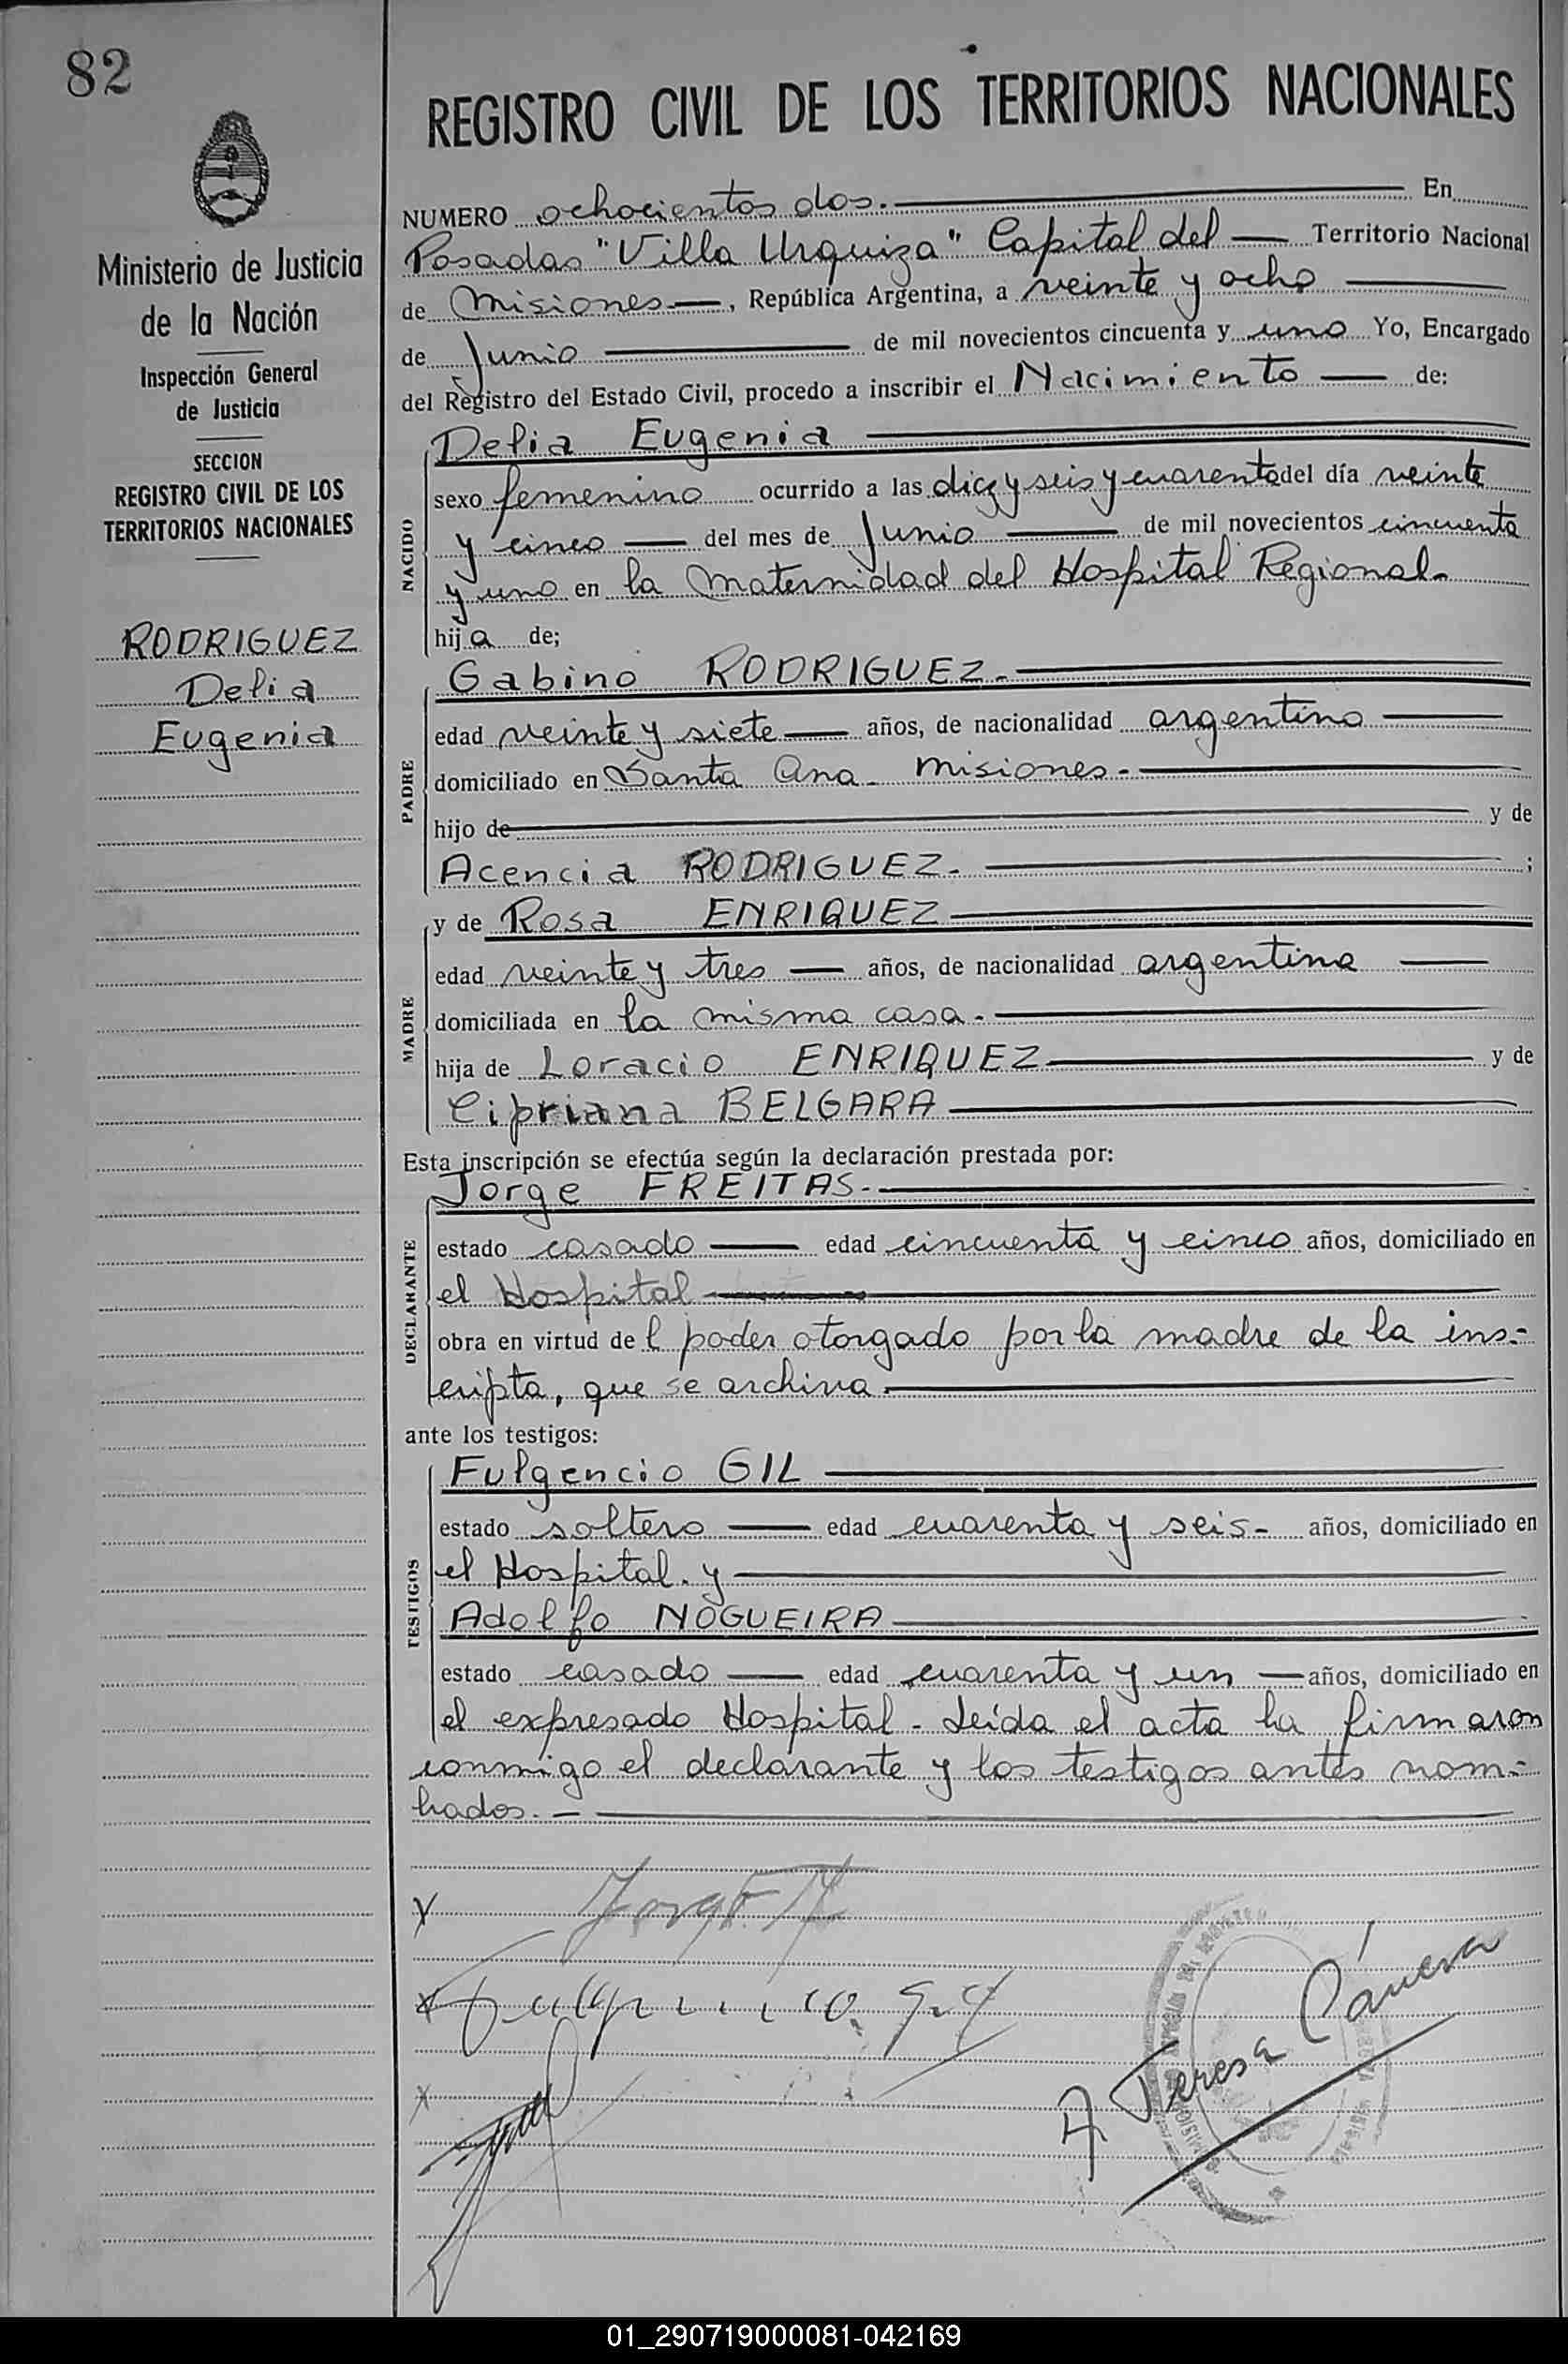 82
Ministerio de Justicia
de la Nación
Inspección General
de Justicia
SECCION
REGISTRO CIVIL DE LOS
TERRITORIOS NACIONALES
RODRIGUEZ
Delia
Eugenia
REGISTRO CIVIL DE LOS TERRITORIOS NACIONALES
NUMERO ochocientos dos. En
Posadas "Villa Urquiza" Capital del Territorio Nacional
de Misiones, República Argentina, a veinte y ocho
de Junio de mil novecientos cincuenta y uno Yo, Encargado
del Registro del Estado Civil, procedo a inscribir el Nacimiento de:
NACIDO
Delia Eugenia
sexo femenino ocurrido a las diez y seis y cuarenta del día veinte
y cinco del mes de Junio de mil novecientos cincuenta
y uno en la Maternidad del Hospital Regional.
hija de;
PADRE
Gabino RODRIGUEZ.
edad veinte y siete años, de nacionalidad argentino
domiciliado en Santa Ana. Misiones.
hijo de y de
Acencia RODRIGUEZ. ;
MADRE
y de Rosa ENRIQUEZ
edad veinte y tres años, de nacionalidad argentina
domiciliada en la misma casa.
hija de Loracio ENRIQUEZ y de
Cipriana BELGARA
Esta inscripción se efectúa según la declaración prestada por:
DECLARANTE
Jorge FREITAS.
estado casado edad cincuenta y cinco años, domiciliado en
el Hospital
obra en virtud del poder otorgado por la madre de la ins-
cripta, que se archiva.
ante los testigos:
TESTIGOS
Fulgencio GIL
estado soltero edad cuarenta y seis- años, domiciliado en
el Hospital. y
Adolfo NOGUEIRA
estado casado edad cuarenta y un años, domiciliado en
el expresado Hospital. Leída el acta la firmaron
conmigo el declarante y los testigos antes nom-
brados.
x Jorge
x Fulgencio Gil
x
A Teresa
01_290719000081-042169